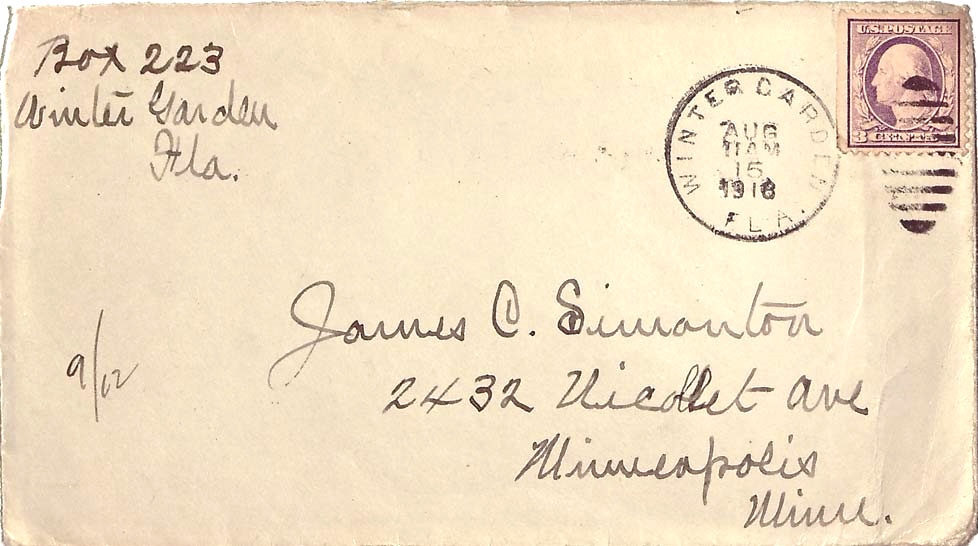 Box 223
Winter Garden
Fla.
WINTER GARDEN
AUG
11 AM
15
1918
FLA.
U.S. POSTAGE
3 CENTS 3
James C. Simonton
2432 Nicollet Ave
Minneapolis
Minn.
9/12